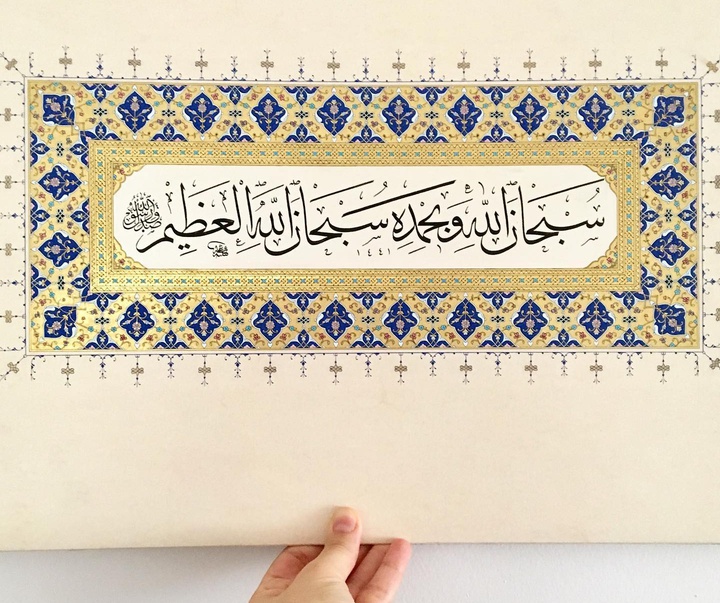 سُبْحَانَ اللّٰهِ وَبِحَمْدِهِ سُبْحَانَ اللّٰهِ الْعَظِيمِ
١٤٤١